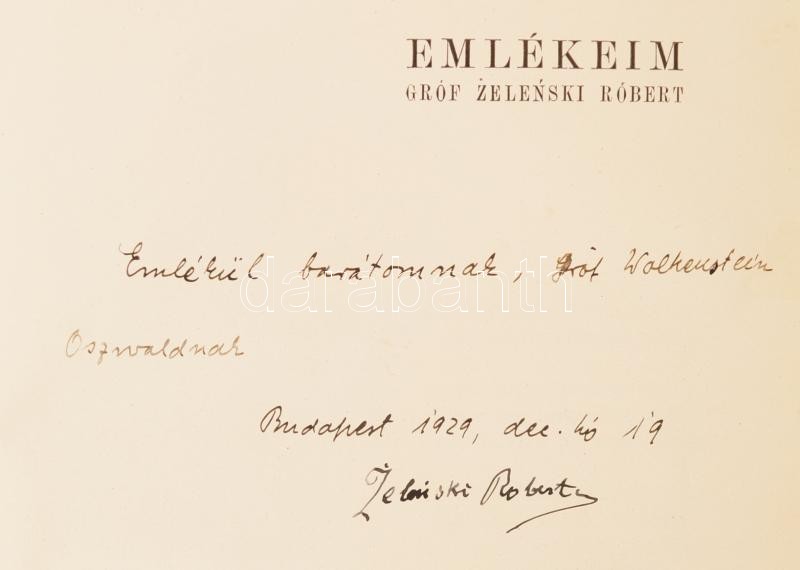 EMLÉKEIM
GRÓF ŻELEŃSKI RÓBERT
Emlékül barátomnak, gróf Wolkenstein
darabanth
Oszwaldnak
Budapest 1929, dec. hó 19
Żeleński Robert